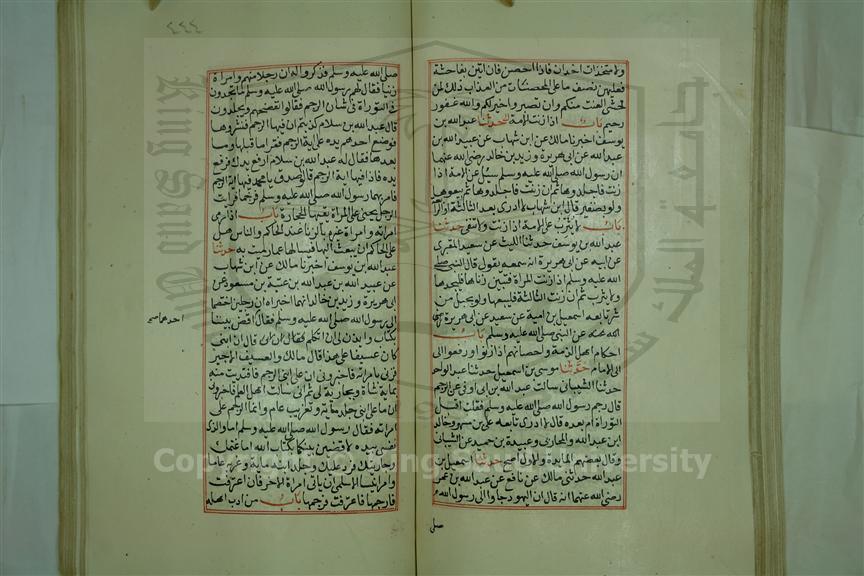 ولا متخذات اخدان فاذا احصن فان اتين بفاحشة
فعليهن نصف ما على المحصنات من العذاب ذلك لمن
خشى العنت منكم وان تصبروا خير لكم والله غفور
رحيم باب اذا زنت الامة حدثنا عبد الله بن
يوسف اخبرنا مالك عن ابن شهاب عن عبيد الله بن
عبد الله عن ابى هريرة وزيد بن خالد رضى الله عنهما
ان رسول الله صلى الله عليه وسلم سئل عن الامة اذا
زنت فاجلدوها ثم ان زنت فاجلدوها ثم بيعوها
ولو بضفير قال ابن شهاب لا ادرى بعد الثالثة او الرابعة
باب لا يثرب على الامة اذا زنت ولا تنفى حدثنا
عبد الله بن يوسف حدثنا الليث عن سعيد المقبرى
عن ابيه عن ابى هريرة انه سمعه يقول قال النبى صلى
الله عليه وسلم اذا زنت المراة فتبين زناها فليجلدها
ولا يثرب ثم ان زنت الثالثة فليبعها ولو بحبل من
شعر تابعه اسمعيل بن امية عن سعيد عن ابى هريرة رضى
الله عنه عن النبى صلى الله عليه وسلم باب
احكام اهل الذمة واحصانهم اذا زنوا ورفعوا الى
الى الامام حدثنا موسى بن اسمعيل حدثنا عبد الواحد
حدثنا الشيبانى سالت عبد الله بن ابى اوفى عن الرجم
قال رجم رسول الله صلى الله عليه وسلم فقلت اقبل
النور ام بعده قال لا ادرى تابعه على بن مسهر وخالد
ابن عبد الله والمحاربى وعبيدة بن حميد عن الشيبانى
وقال بعضهم المايدة والاول اصح حدثنا اسمعيل بن
عبد الله حدثنى مالك عن نافع عن عبد الله بن عمر
رضى الله عنهما انه قال ان اليهود جاوا الى رسول الله
صلى
٤٤٤
صلى الله عليه وسلم فذكروا له ان رجلا منهم وامراة
زنيا فقال لهم رسول الله صلى الله عليه وسلم ما تجدون
فى التوراة فى شان الرجم فقالوا نفضحهم ويجلدون
قال عبد الله بن سلام كذبتم ان فيها الرجم فنشروها
فوضع احدهم يده على اية الرجم فقرا ما قبلها وما
بعدها فقال له عبد الله بن سلام ارفع يدك فرفع
يده فاذا فيها اية الرجم قالوا صدق يا محمد فيها اية الرجم
فامر بهما رسول الله صلى الله عليه وسلم فرجما فرايت
الرجل يحنى على المراة يقيها الحجارة باب اذا رمى
امراته او امراة غيره بالزنا عند الحاكم والناس هل
على الحاكم ان يبعث اليها فيسالها عما رميت به حدثنا
عبد الله بن يوسف اخبرنا مالك عن ابن شهاب
عن عبيد الله بن عبد الله بن عتبة بن مسعود عن
ابى هريرة وزيد بن خالد انهما اخبراه ان رجلين اختصما
الى رسول الله صلى الله عليه وسلم فقال اقض بيننا
احدهما صح
بكتاب الله وايذن لى ان اتكلم فقال ان ابنى
كان عسيفا على هذا قال مالك والعسيف الاجير
فزنى بامراته فاخبرونى ان على ابنى الرجم فافتديت منه
بماية شاة وبجارية لى ثم انى سالت اهل العلم فاخبرونى
ان ما على ابنى جلد ماية وتغريب عام وانما الرجم على
امراته فقال رسول الله صلى الله عليه وسلم اما والذى
نفسى بيده لاقضين بينكما بكتاب الله اما غنمك
وجاريتك فرد عليك وجلد ابنه ماية وغربه عاما
وامر انيسا الاسلمى ان ياتى امراة الاخر فان اعترفت
فارجمها فاعترفت فرجمها باب من ادب اهله
Copyright © King Saud University
King Saud University
جامعة الملك سعود